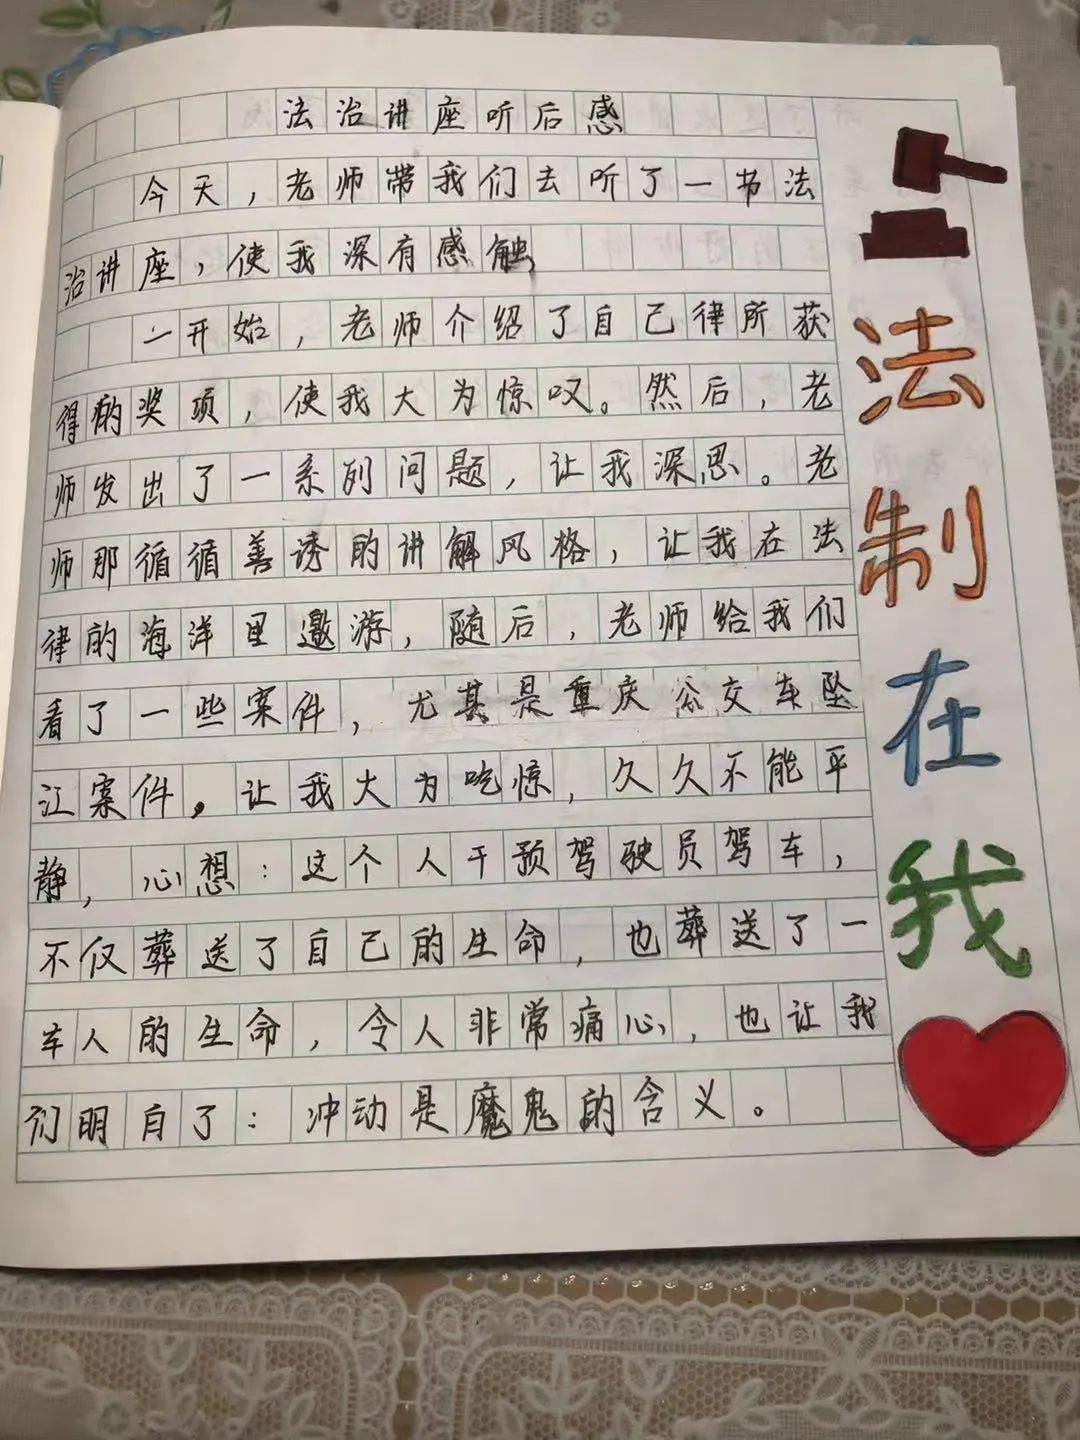 法治讲座听后感
今天，老师带我们去听了一节法
治讲座，使我深有感触
一开始，老师介绍了自己律所获
得的奖项，使我大为惊叹。然后，老
师发出了一系列问题，让我深思。老
师那循循善诱的讲解风格，让我在法
律的海洋里遨游，随后，老师给我们
看了一些案件，尤其是重庆公交车坠
江案件。让我大为吃惊，久久不能平
静，心想：这个人干预驾驶员驾车，
不仅葬送了自己的生命，也葬送了一
车人的生命，令人非常痛心，也让我
们明白了：冲动是魔鬼的含义。
法制在我